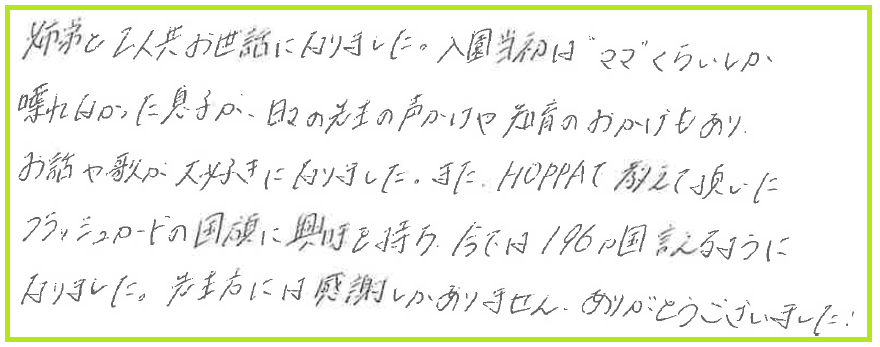 姉弟と2人共お世話になりました。入園当初は"ママ"くらいしか
喋れなかった息子が、日々の先生の声かけや知育のおかげもあり、
お話や歌が大好きになりました。また、HOPPAで教えて頂いた
フラッシュカードの国旗に興味を持ち、今では196ヵ国言えるように
なりました。先生方には感謝しかありません、ありがとうございました!